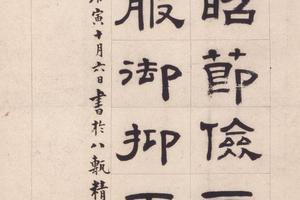 昭節儉一
服御抑
寅十月六日書於八甎精